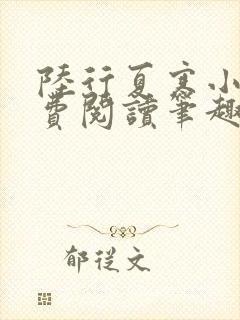 陸行夏寒小
費閱讀筆趣
郁從文